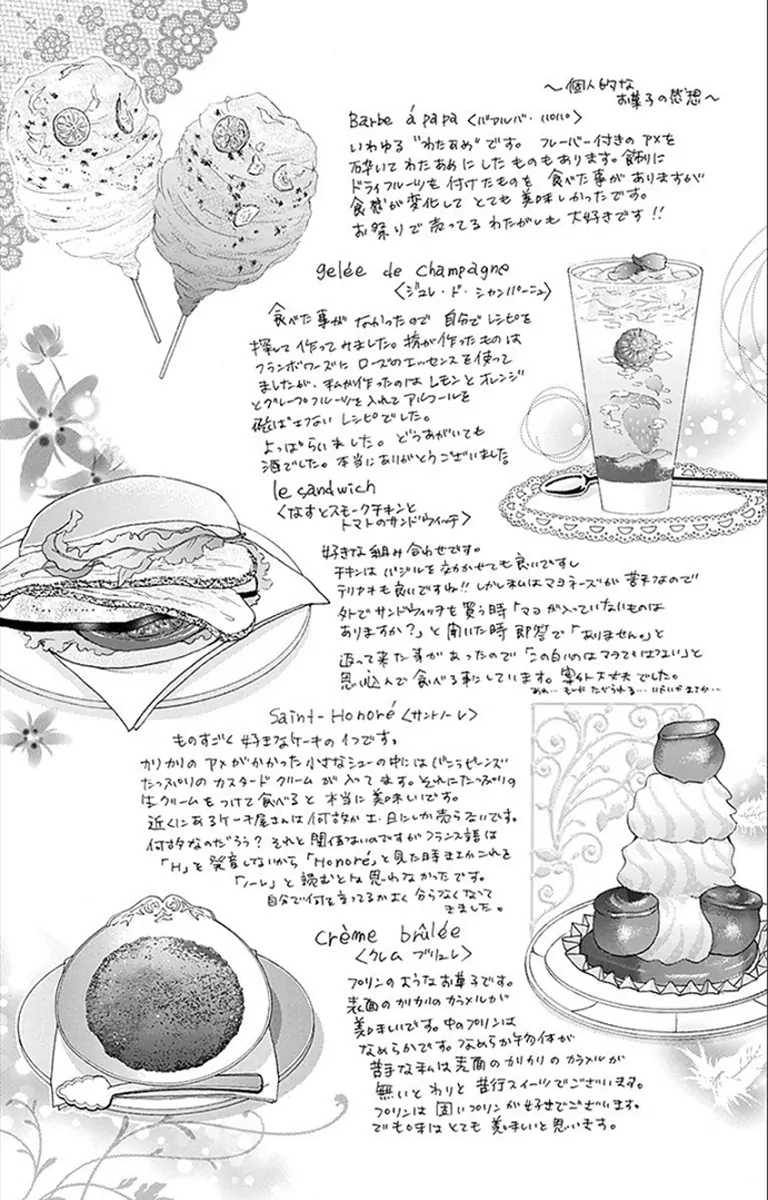 〜個人的な
お菓子の感想〜
Barbe á papa〈バアルバ・パパ〉
いわゆる"わたあめ"です。 フレーバー付きのアメを
砕いてわたあめにしたものもあります。飾りに
ドライフルーツを付けたものを 食べた事がありますが
食感が変化して とても美味しかったです。
お祭りで売ってるわたがしも大好きです!!
gelée de champagne
〈ジュレ・ド・シャンパーニュ〉
食べた事がなかったので 自分でレシピを
探して作ってみました。 が作ったものは
フランボワーズに ローズのエッセンスを使って
ましたが、私が作ったのはレモンとオレンジ
とグレープフルーツを入れてアルコールを
飛ばさないレシピでした。
よっぱらいました。どうあがいても
酒でした。本当にありがとうございました
le sandwich
〈なすとスモークチキンと
トマトのサンドウィッチ〉
好きな組み合わせです。
チキンはバジルを効かせても良いですし
テリヤキも良いですね!! しかし私はマヨネーズが苦手なので
外でサンドウィッチを買う時「マヨが入っていないものは
ありますか?」と聞いた時 即答で「ありません。」と
返って来た事があったので「この白いのはマヨではない」と
思い込んで食べる事にしています。案外大丈夫でした。
あれ…もしや たべられる…
Saint-Honoré〈サントノーレ〉
ものすごく好きなケーキの1つです。
カリカリのアメがかかった小さなシューの中にはバニラビーンズ
たっぷりのカスタードクリームが入ってます。それにたっぷりの
生クリームをつけて食べると 本当に美味しいです。
近くにあるケーキ屋さんは何故か土・日にしか売らないです。
何故なのだろう? それと関係ないのですがフランス語は
「H」を発音しないから「Honoré」と見た時まさかこれを
「ノーレ」と読むとは思わなかったです。
自分で何を言ってるかよく分らなくなって
きました。
crème brûlée
〈クレム ブリュレ〉
プリンのようなお菓子です。
表面のカリカリのカラメルが
美味しいです。中のプリンは
なめらかです。なめらかな物体が
苦手な私は表面のカリカリのカラメルが
無いとわりと苦行スイーツでございます。
プリンは固いプリンが好きでございます。
でも味はとても美味しいと思います。